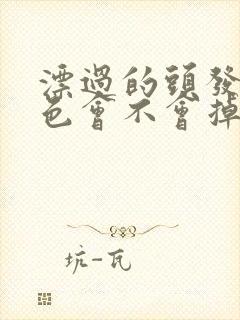 漂過的頭發
色會不會掉
坑-瓦